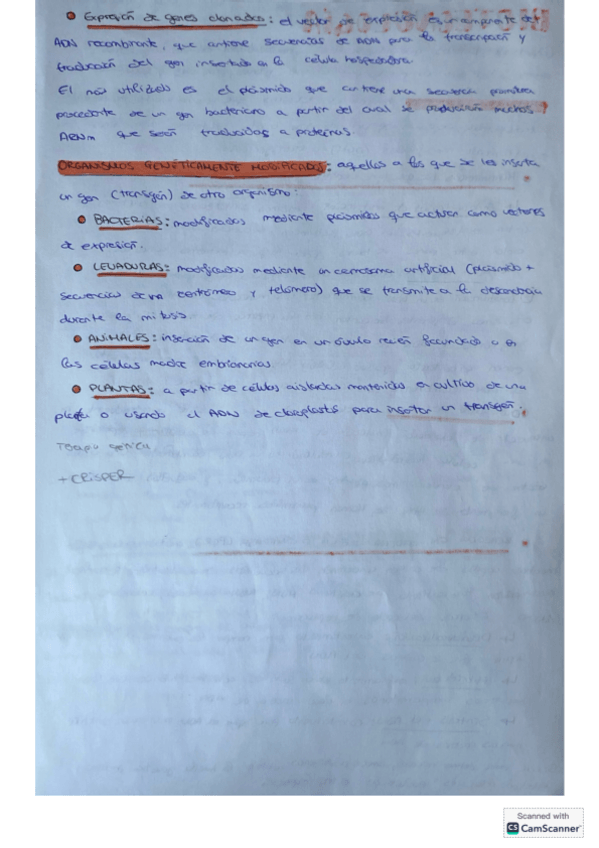 • Expresión de genes clonados: el vector de expresión es un componente del
ADN recombinante, que contiene secuencias de ADN para la transcripción y
traducción del gen insertado en la célula hospedadora.
El más utilizado es el plásmido que contiene una secuencia promotora
procedente de un gen bacteriano a partir del cual se producirán muchos
ARNm que serán traducidos a proteínas.
ORGANISMOS GENÉTICAMENTE MODIFICADOS: aquellos a los que se les inserta
un gen (transgén) de otro organismo:
• BACTERIAS: modificadas mediante plásmidos que actúan como vectores
de expresión.
• LEVADURAS: modificadas mediante un cromosoma artificial (plásmido +
secuencias de un centrómero y telómero) que se transmite a la descendencia
durante la mitosis.
• ANIMALES: inserción de un gen en un óvulo recién fecundado o en
las células madre embrionarias.
• PLANTAS: a partir de células aisladas mantenidas en cultivo de una
planta o usando el ADN de cloroplastos para insertar un transgén.
Terapia génica
+ CRISPER
Scanned with
CS CamScanner